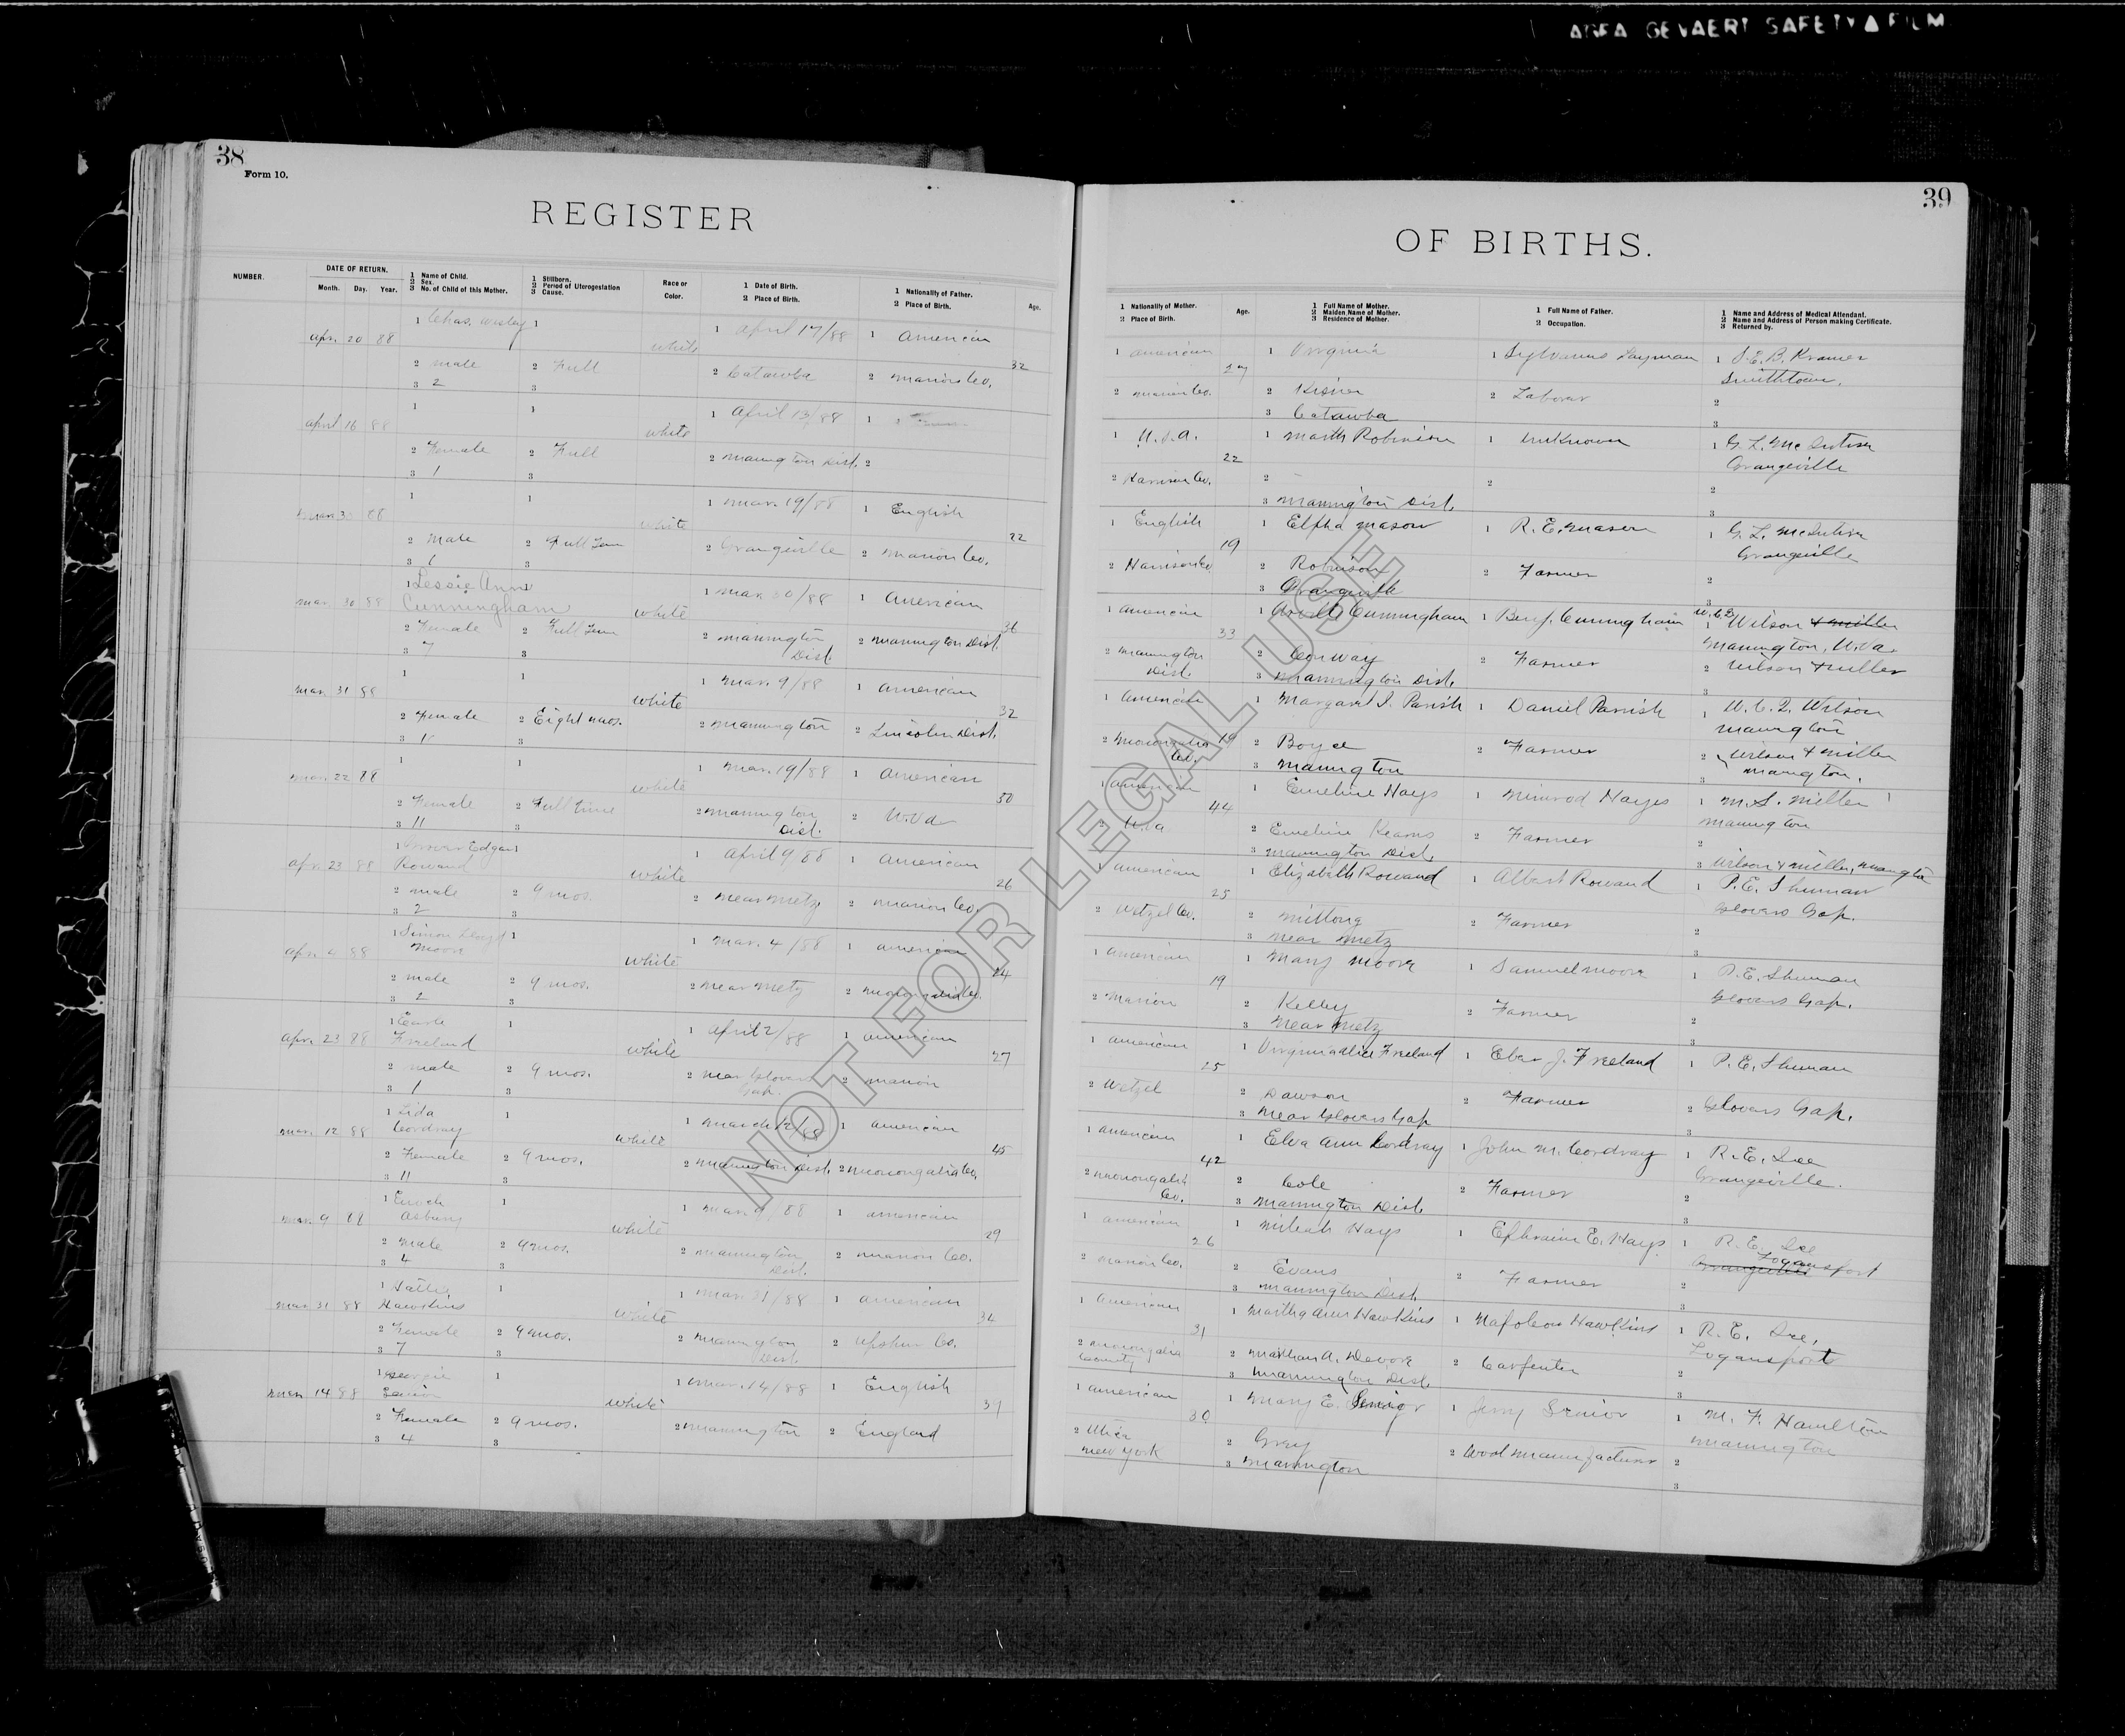 AGFA GEVAERT SAFETY FILM
38
Form 10.
REGISTER
NUMBER.
DATE OF RETURN.
Month. Day. Year.
1 Name of Child.
2 Sex.
3 No. of Child of this Mother.
1 Stillborn.
2 Period of Uterogestation
3 Cause.
Race or
Color.
1 Date of Birth.
2 Place of Birth.
1 Nationality of Father.
2 Place of Birth.
Age.
Apr. 20 88 1 Chas. Wesley 1 white 1 April 17/88 1 American 32
2 male 2 Full 2 Catawba 2 Marion Co.
3 2 3
April 16 88 1 1 white 1 April 13/88 1
2 Female 2 Full 2 Mannington Dist. 2
3 1 3
88 1 1 white 1 Mar. 19/88 1 English 22
2 Male 2 Full 2 Grangeville 2 Marion Co.
3 1 3
Mar. 30 88 1 Lessie Ann
Cunningham white 1 Mar. 30/88 1 American 36
2 Female 2 Full 2 Mannington
Dist. 2 Mannington Dist.
3 7 3
Mar. 31 88 1 1 white 1 Mar. 9/88 1 American 32
2 Female 2 Eight mos. 2 Mannington 2 Lincoln Dist.
3 3
Mar. 22 88 1 1 white 1 Mar. 19/88 1 American 50
2 Female 2 Full time 2 Mannington
Dist. 2 W.Va
3 11 3
Apr. 23 88 1 Grover Edgar 1
Rowand white 1 April 9/88 1 American 26
2 male 2 9 mos. 2 near Metz 2 Marion Co.
3 2 3
Apr. 4 88 1 Simon Lloyd 1
Moore white 1 Mar. 4/88 1 American 24
2 male 2 9 mos. 2 Near Metz 2 Monongalia Co.
3 2 3
Apr. 23 88 1 Earle 1
Freeland white 1 April 2/88 1 American 27
2 male 2 9 mos. 2 near Glovers
Gap. 2 Marion
3 1 3
Mar. 12 88 1 Lida 1
Cordray white 1 March 12/88 1 American 45
2 Female 2 9 mos. 2 Mannington Dist. 2 Monongalia Co.
3 11 3
Mar. 9 88 1 Enoch 1
Asbury white 1 Mar. 9/88 1 American 29
2 Male 2 9 mos. 2 Mannington
Dist. 2 Marion Co.
3 4 3
Mar. 31 88 1 Hattie 1
Hawkins white 1 Mar. 31/88 1 American 34
2 Female 2 9 mos. 2 Mannington
Dist. 2 Upshur Co.
3 7 3
Mar. 14 88 1 Georgie 1
Senior white 1 Mar. 14/88 1 English
2 Female 2 9 mos. 2 Mannington 2 England
3 4 3
39
OF BIRTHS.
1 Nationality of Mother.
2 Place of Birth.
Age.
1 Full Name of Mother.
2 Maiden Name of Mother.
3 Residence of Mother.
1 Full Name of Father.
2 Occupation.
1 Name and Address of Medical Attendant.
2 Name and Address of Person making Certificate.
3 Returned by.
1 American 27 1 Virginia 1 Sylvanus Layman 1 S.E.B. Kramer
Smithtown.
2 Marion Co. 2 Kisner 2 Laborer 2
3 Catawba 3
1 U.S.A. 22 1 Marth Robinson 1 Unknown 1 G. L. McIntire
Grangeville
2 Harrison Co. 2 2 2
3 Mannington Dist. 3
1 English 19 1 Elpha Mason 1 R. E. Mason 1 G. L. McIntire
Grangeville
2 Harrison Co. 2 Robinson 2 Farmer 2
3 Grangeville 3
1 American 33 1 Cunningham 1 Benj. Cunningham 1 Wilson & Miller
Mannington, W.Va.
2 Mannington
Dist. 2 Conway 2 Farmer 2 Wilson & Miller
3 Mannington Dist. 3
1 American 19 1 Margaret S. Parish 1 Daniel Parrish 1 Wilson
Mannington
2 Monongalia
Co. 2 Boyce 2 Farmer 2 Wilson & Miller
3 Mannington 3 Mannington.
1 American 44 1 Emeline Hays 1 Nimrod Hayes 1 M. S. Miller
Mannington
2 W.Va 2 Emeline Kearns 2 Farmer 2
3 Mannington Dist. 3 Wilson & Miller, Mannington
1 American 25 1 Elizabeth Rowand 1 Albert Rowand 1 P. E. Shuman
Glovers Gap.
2 Wetzel Co. 2 Mittong 2 Farmer 2
3 near Metz 3
1 American 19 1 Mary Moore 1 Samuel Moore 1 P. E. Shuman
Glovers Gap.
2 Marion 2 Kelley 2 Farmer 2
3 Near Metz 3
1 American 25 1 Virginia Alice Freeland 1 Eber J. Freeland 1 P. E. Shuman
2 Wetzel 2 Dawson 2 Farmer 2 Glovers Gap.
3 Near Glovers Gap 3
1 American 42 1 Elva Ann Cordray 1 John M. Cordray 1 R. E. Ice
Grangeville.
2 Monongalia
Co. 2 Cole 2 Farmer 2
3 Mannington Dist. 3
1 American 26 1 Mileah Hays 1 Ephraim E. Hays 1 R. E. Ice
Grangeville Logansport
2 Marion Co. 2 Evans 2 Farmer 2
3 Mannington Dist. 3
1 American 31 1 Martha Ann Hawkins 1 Napoleon Hawkins 1 R. E. Ice,
Logansport
2 Monongalia
County 2 Martha A. Devore 2 Carpenter 2
3 Mannington Dist. 3
1 American 30 1 Mary E. Senior 1 Jerry Senior 1 M. F. Hamilton
Mannington
2 Utica
New York 2 Gray 2 Wool Manufacturer 2
3 Mannington 3
NOT FOR LEGAL USE